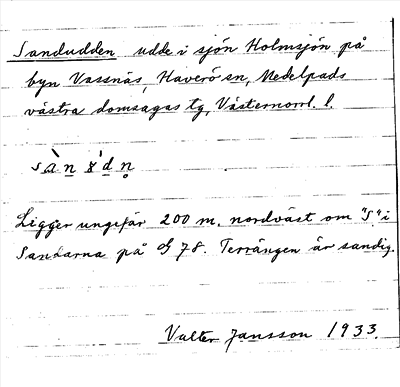 Sandudden udde i sjön Holmsjön på
byn Vassnäs, Haverö sn, Medelpads
västra domsagas tg, Västernorrl. l.
Ligger ungefär 200 m. nordväst om "S" i
Sandarna på G 78. Terrängen är sandig.
Valter Jansson 1933.